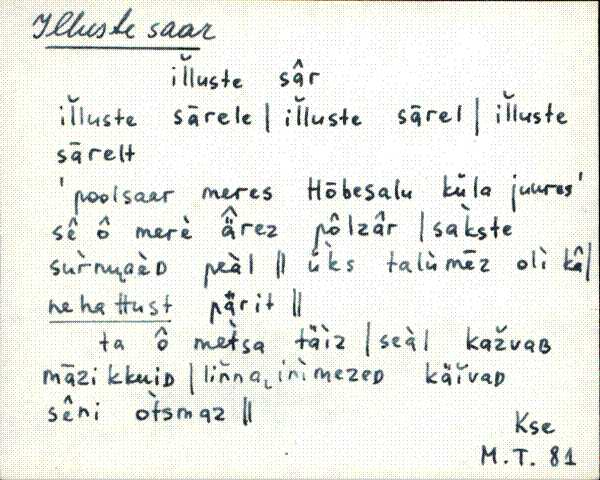 Illuste saar
iĺ̆luste sâr
iĺ̆luste sārele | iĺ̆luste sārel | iĺ̆luste
sārelt
'poolsaar meres Hõbesalu küla juures'
sê ô merè ä̂rez pôlzâr | sàkste
surnuaèD peàl || ùks talùmēz olì kâ|
nehattust pärit ||
ta ô metsa täìz | seàl kažvaB
māzikkuiD | linna inìmezeD käĭvaD
sêni òtsmaz ||
Kse
M.T. 81